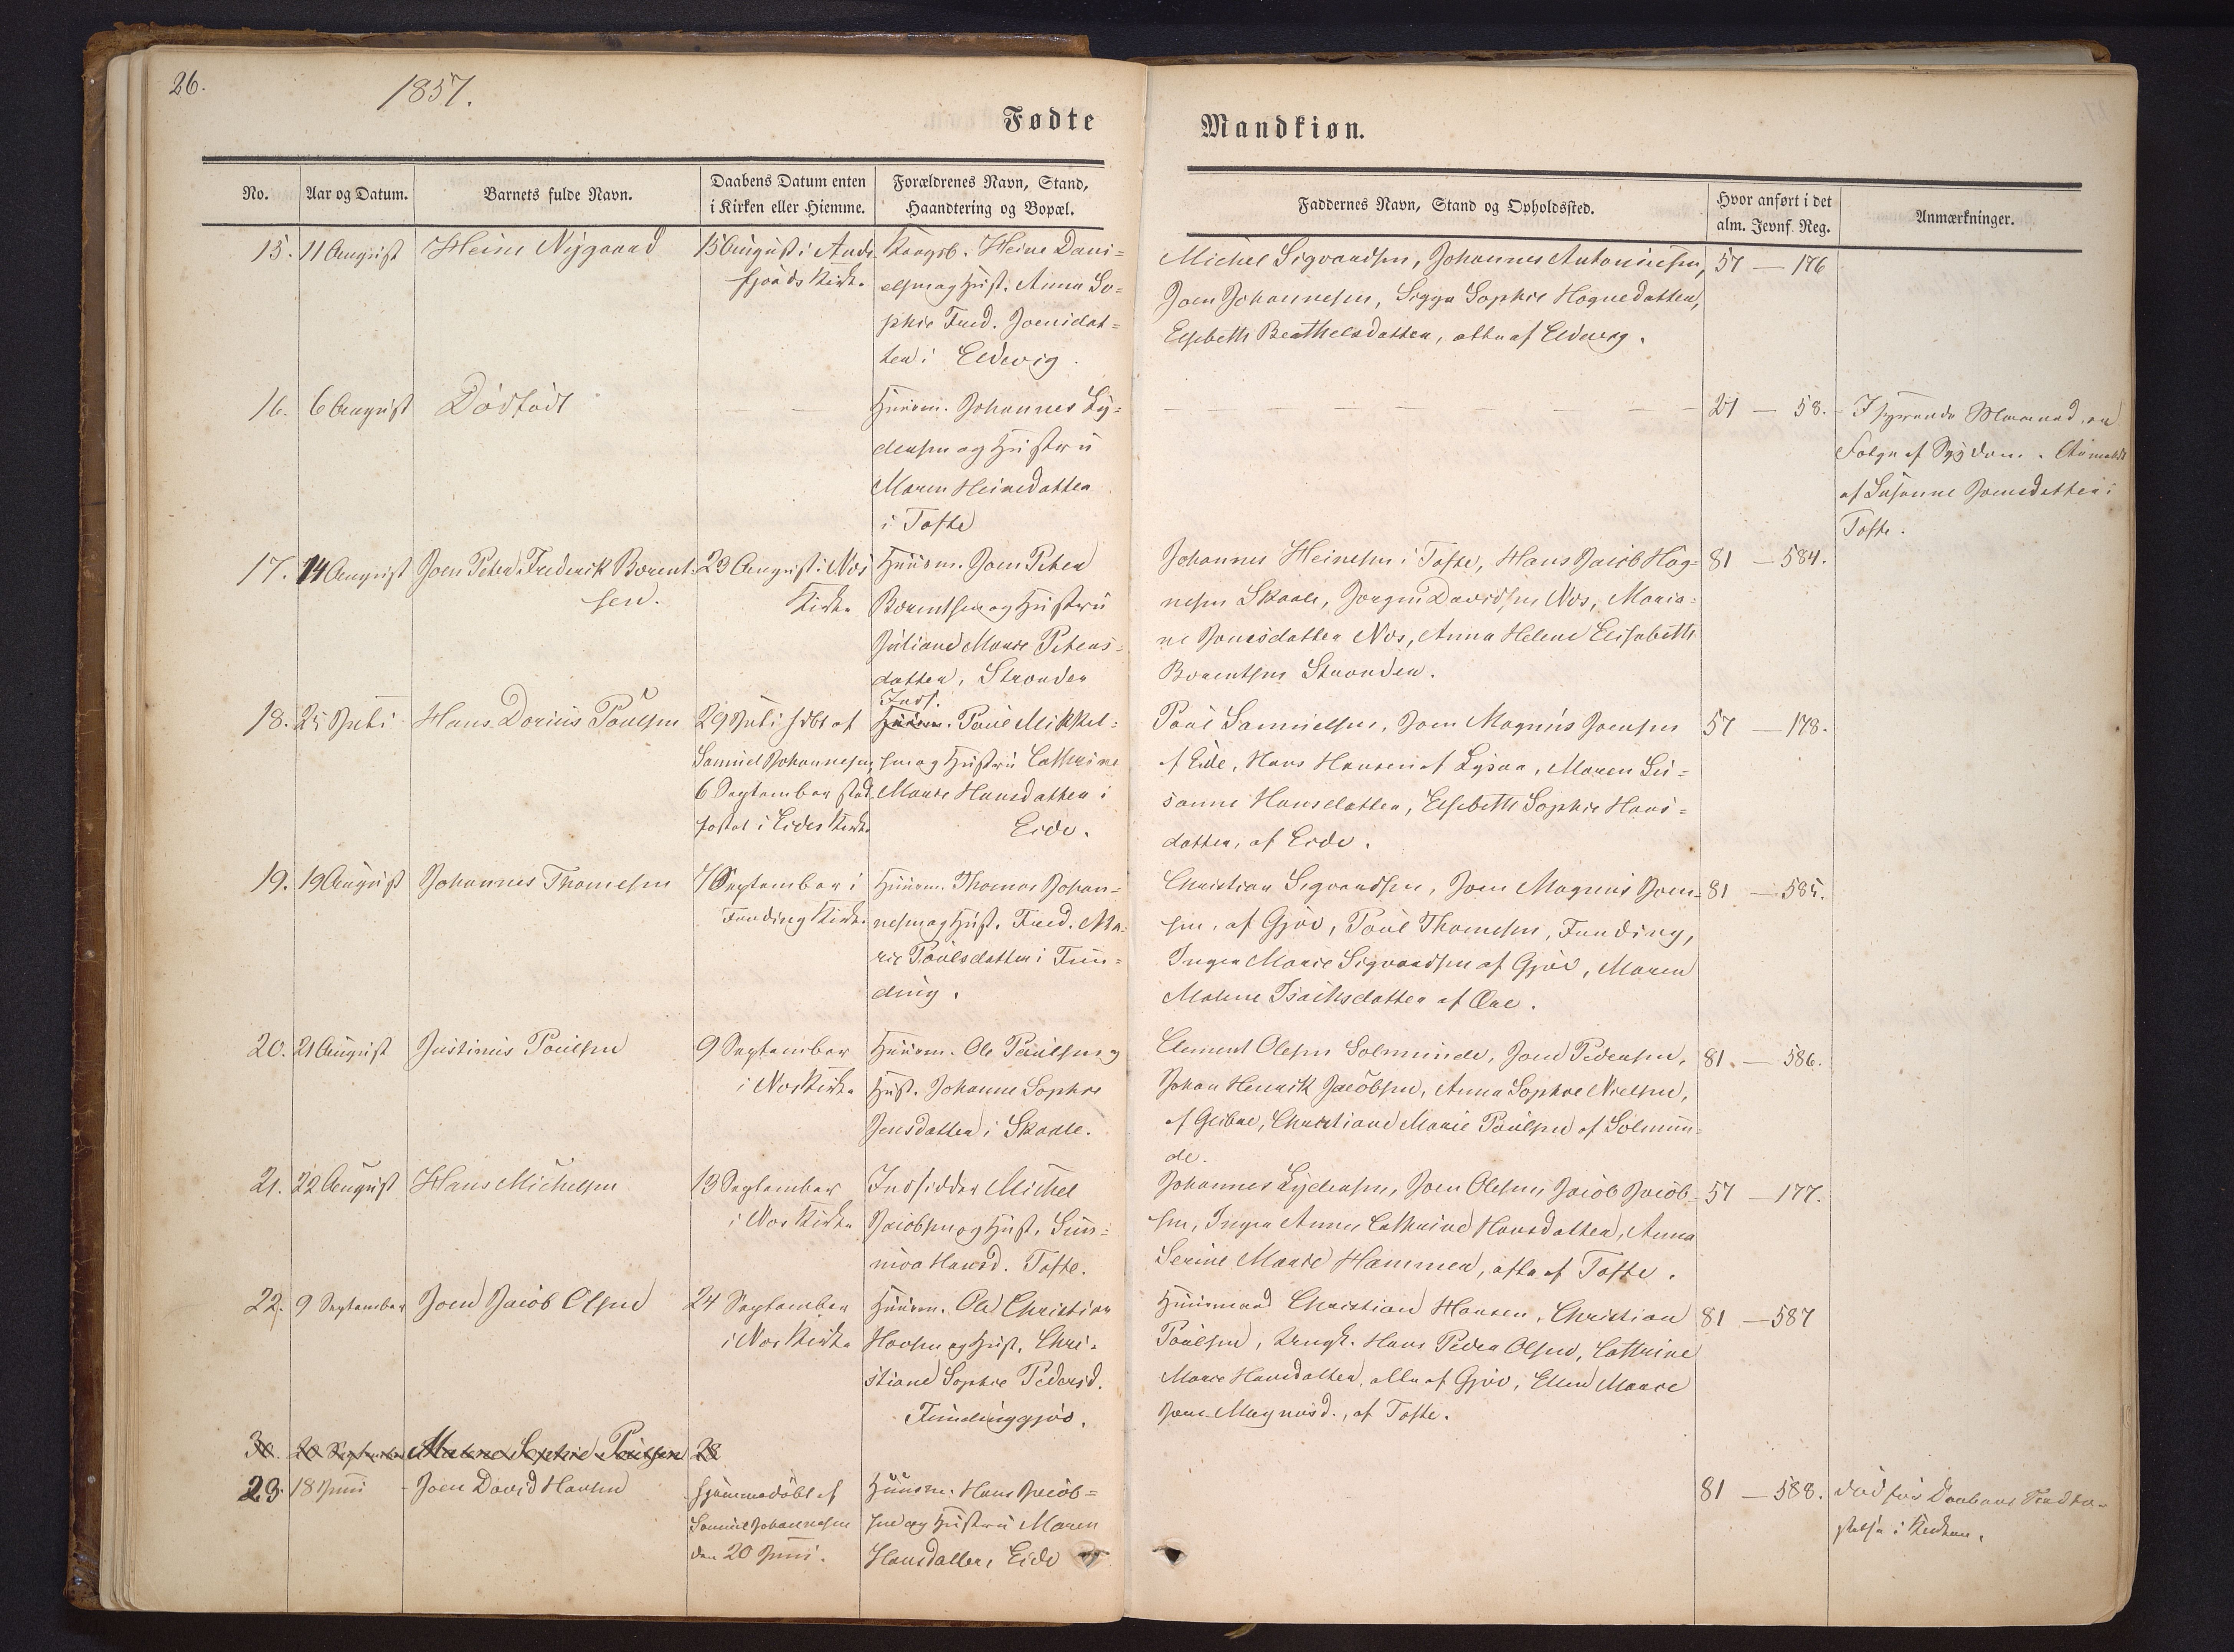 26.
1857.
Fødte
Mandkiøn.
No.
Aar og Datum.
Barnets fulde Navn.
Daabens Datum enten
i Kirken eller Hiemme.
Forældrenes Navn, Stand,
Haandtering og Bopæl.
Faddernes Navn, Stand og Opholdssted.
Hvor anført i det
alm. Jevnf. Reg.
Anmærkninger.
15. 11 August Heine Nygaard
15 August i Ande-
fjords Kirke
Kongsb. Heine Dani=
elsen og Hust. Anna So=
phie Fred. Joensdat=
ter i Eldevig.
Michel Sigvardsen, Johannes Antoniusen,
Joen Johannesen, Sigga Sophie Hognedatter,
Elsebeth Berthelsdatter, alle af Eldevig.
57 — 176
16. 6 August Dødfødt
Huusm. Johannes Ly=
dersen og Hustru
Maren Heinedatter
i Tofte
21 — 58.
I syvende Maaned, en
Følge af Sygdom. Anmeldt
af Susanne Joensdatter i
Tofte.
17. 14 August Joen Peter Frederik Berent-
sen.
23 August i Nes
Kirke
Huusm. Joen Peter
Berentsen og Hustru
Juliane Marie Peters=
datter, Strender
Johannes Heinesen i Tofte, Hans Jacob Hog=
nesen Skaale, Jørgen Davidsen Nes, Maria=
ne Joensdatter Nes, Anna Helene Elisabeth
Berentsen Strender.
81 — 584.
18. 25 Juli Hans Dorius Poulsen
29 Juli hdbt af
Samuel Johannesen,
6 September stad
fæstet i Eides Kirke
Inds.
Huusm. Poul Mikkel=
sen og Hustru Cathrine
Marie Hansdatter i
Eide.
Poul Samuelsen, Joen Magnus Joensen
af Eide, Hans Hansen af Ljosaa, Maren Su=
sanne Hansdatter, Elsebeth Sophie Hans=
datter, af Eide.
57 — 178.
19. 19 August Johannes Thomesen
7 September i
Funding Kirke
Huusm. Thomas Johan=
nesen og Hust. Fred. Ma=
rie Poulsdatter i Fun=
ding.
Christian Sigvardsen, Joen Magnus Joen-
sen, af Gjov, Poul Thomesen, Funding,
Inger Marie Sigvardsen af Gjov, Maren
Malene Isaksdatter af Øre.
81 — 585.
20. 21 August Justinus Poulsen
9 September
i Nes Kirke
Huusm. Ole Poulsen og
Hust. Johanne Sophie
Jensdatter i Skaale.
Clement Olesen Solmunde, Joen Pedersen,
Johan Henrik Jacobsen, Anna Sophie Nielsen,
af Glibre, Christiane Marie Poulsen af Solmun=
de.
81 — 586.
21. 22 August Hans Michelsen
13 September
i Nes Kirke
Indsidder Michel
Jacobsen og Hust. Sun=
niva Hansd. Tofte.
Johannes Lydersen, Joen Olesen, Jacob Jacob-
sen, Inger Anna Cathrine Hansdatter, Anna
Serine Marie Hammer, alle af Tofte.
57 — 177.
22. 9 September Joen Jacob Olsen
24 September
i Nes Kirke
Huusm. Ole Christian
Hansen og Hust. Chri=
stiane Sophie Pedersd.
Fundinggjov.
Huusmand Christian Hansen, Christian
Poulsen, Ungk. Hans Peder Olsen, Cathrine
Marie Hansdatter, alle af Gjov, Ellen Marie
Joen Magnusd., af Tofte.
81 — 587
30. 20 September Malene Sophie Poulsen 28
23. 18 Juni Joen David Hansen
hjemmedøbt af
Samuel Johannesen
den 20 Juni.
Huusm. Hans Jacob=
sen og Hustru Maren
Hansdatter, Eide
81 — 588.
død før Daabens Stadfæ-
stelse i Kirken.